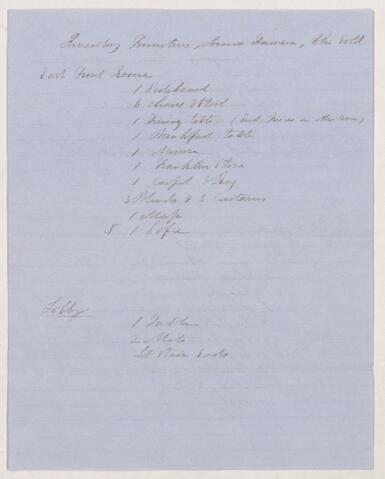 Inventory Furniture,
East Front Room
1 Sideboard
6 chairs
1 Dining table (
1 Breakfast table
1 Mirror
1 Franklin Stove
1 Carpet & Rug
3 Blinds & 3 Curtains
1 Map
5 1 Sofa
Lobby
1 Table
2 Mats
Stair